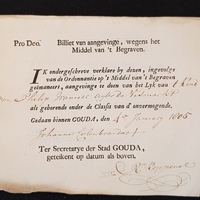 Pro Deo. Billiet van aangevinge, wegens het
Middel van 't Begraven.
IK ondergeschreve verklare by dezen, ingevolge
van de Ordonnantie op 't Middel van 't Begraven
geëmaneert, aangevinge te doen van het Lyk van 1 kind
van Philip
als gehorende onder de Classis van d' onvermogende.
Gedaan binnen GOUDA, den 4e January 1805
Johannes
Ter Secretarye der Stad GOUDA,
geteikent op datum als boven.